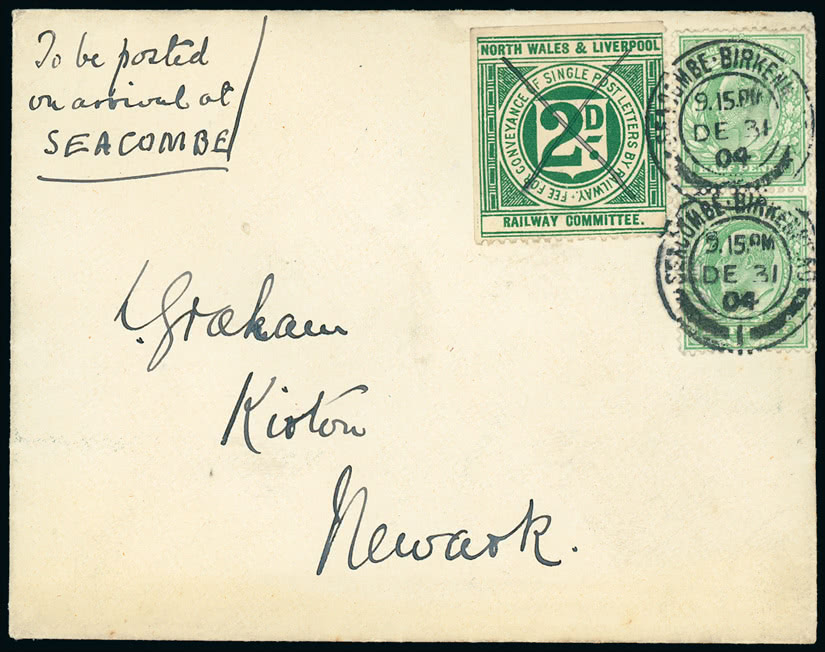 To be posted
on arrival at
SEACOMBE
NORTH WALES & LIVERPOOL
FEE FOR CONVEYANCE OF SINGLE POST LETTERS BY RAILWAY.
2D
RAILWAY COMMITTEE.
SEACOMBE·BIRKENHEAD
9.15.PM
DE 31
04
HALF PENNY
SEACOMBE·BIRKENHEAD
9.15.PM
DE 31
04
1
Graham
Newark.